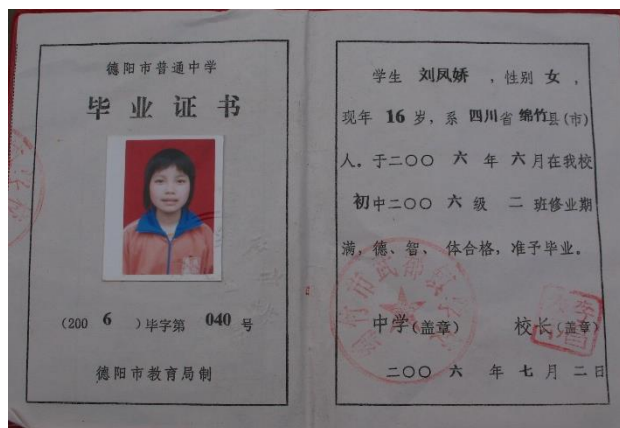 德阳市普通中学
毕业证书
(2006)毕字第 040 号
德阳市教育局制
学生 刘凤娇 ,性别 女 ,
现年 16 岁, 系 四川 省 绵竹 县(市)
人。于二〇〇 六 年 六 月在我校
初 中二〇〇 六 级 二 班修业期
满,德、智、体合格,准予毕业。
中学(盖章) 校长(盖章)
二〇〇 六 年 七 月 二 日